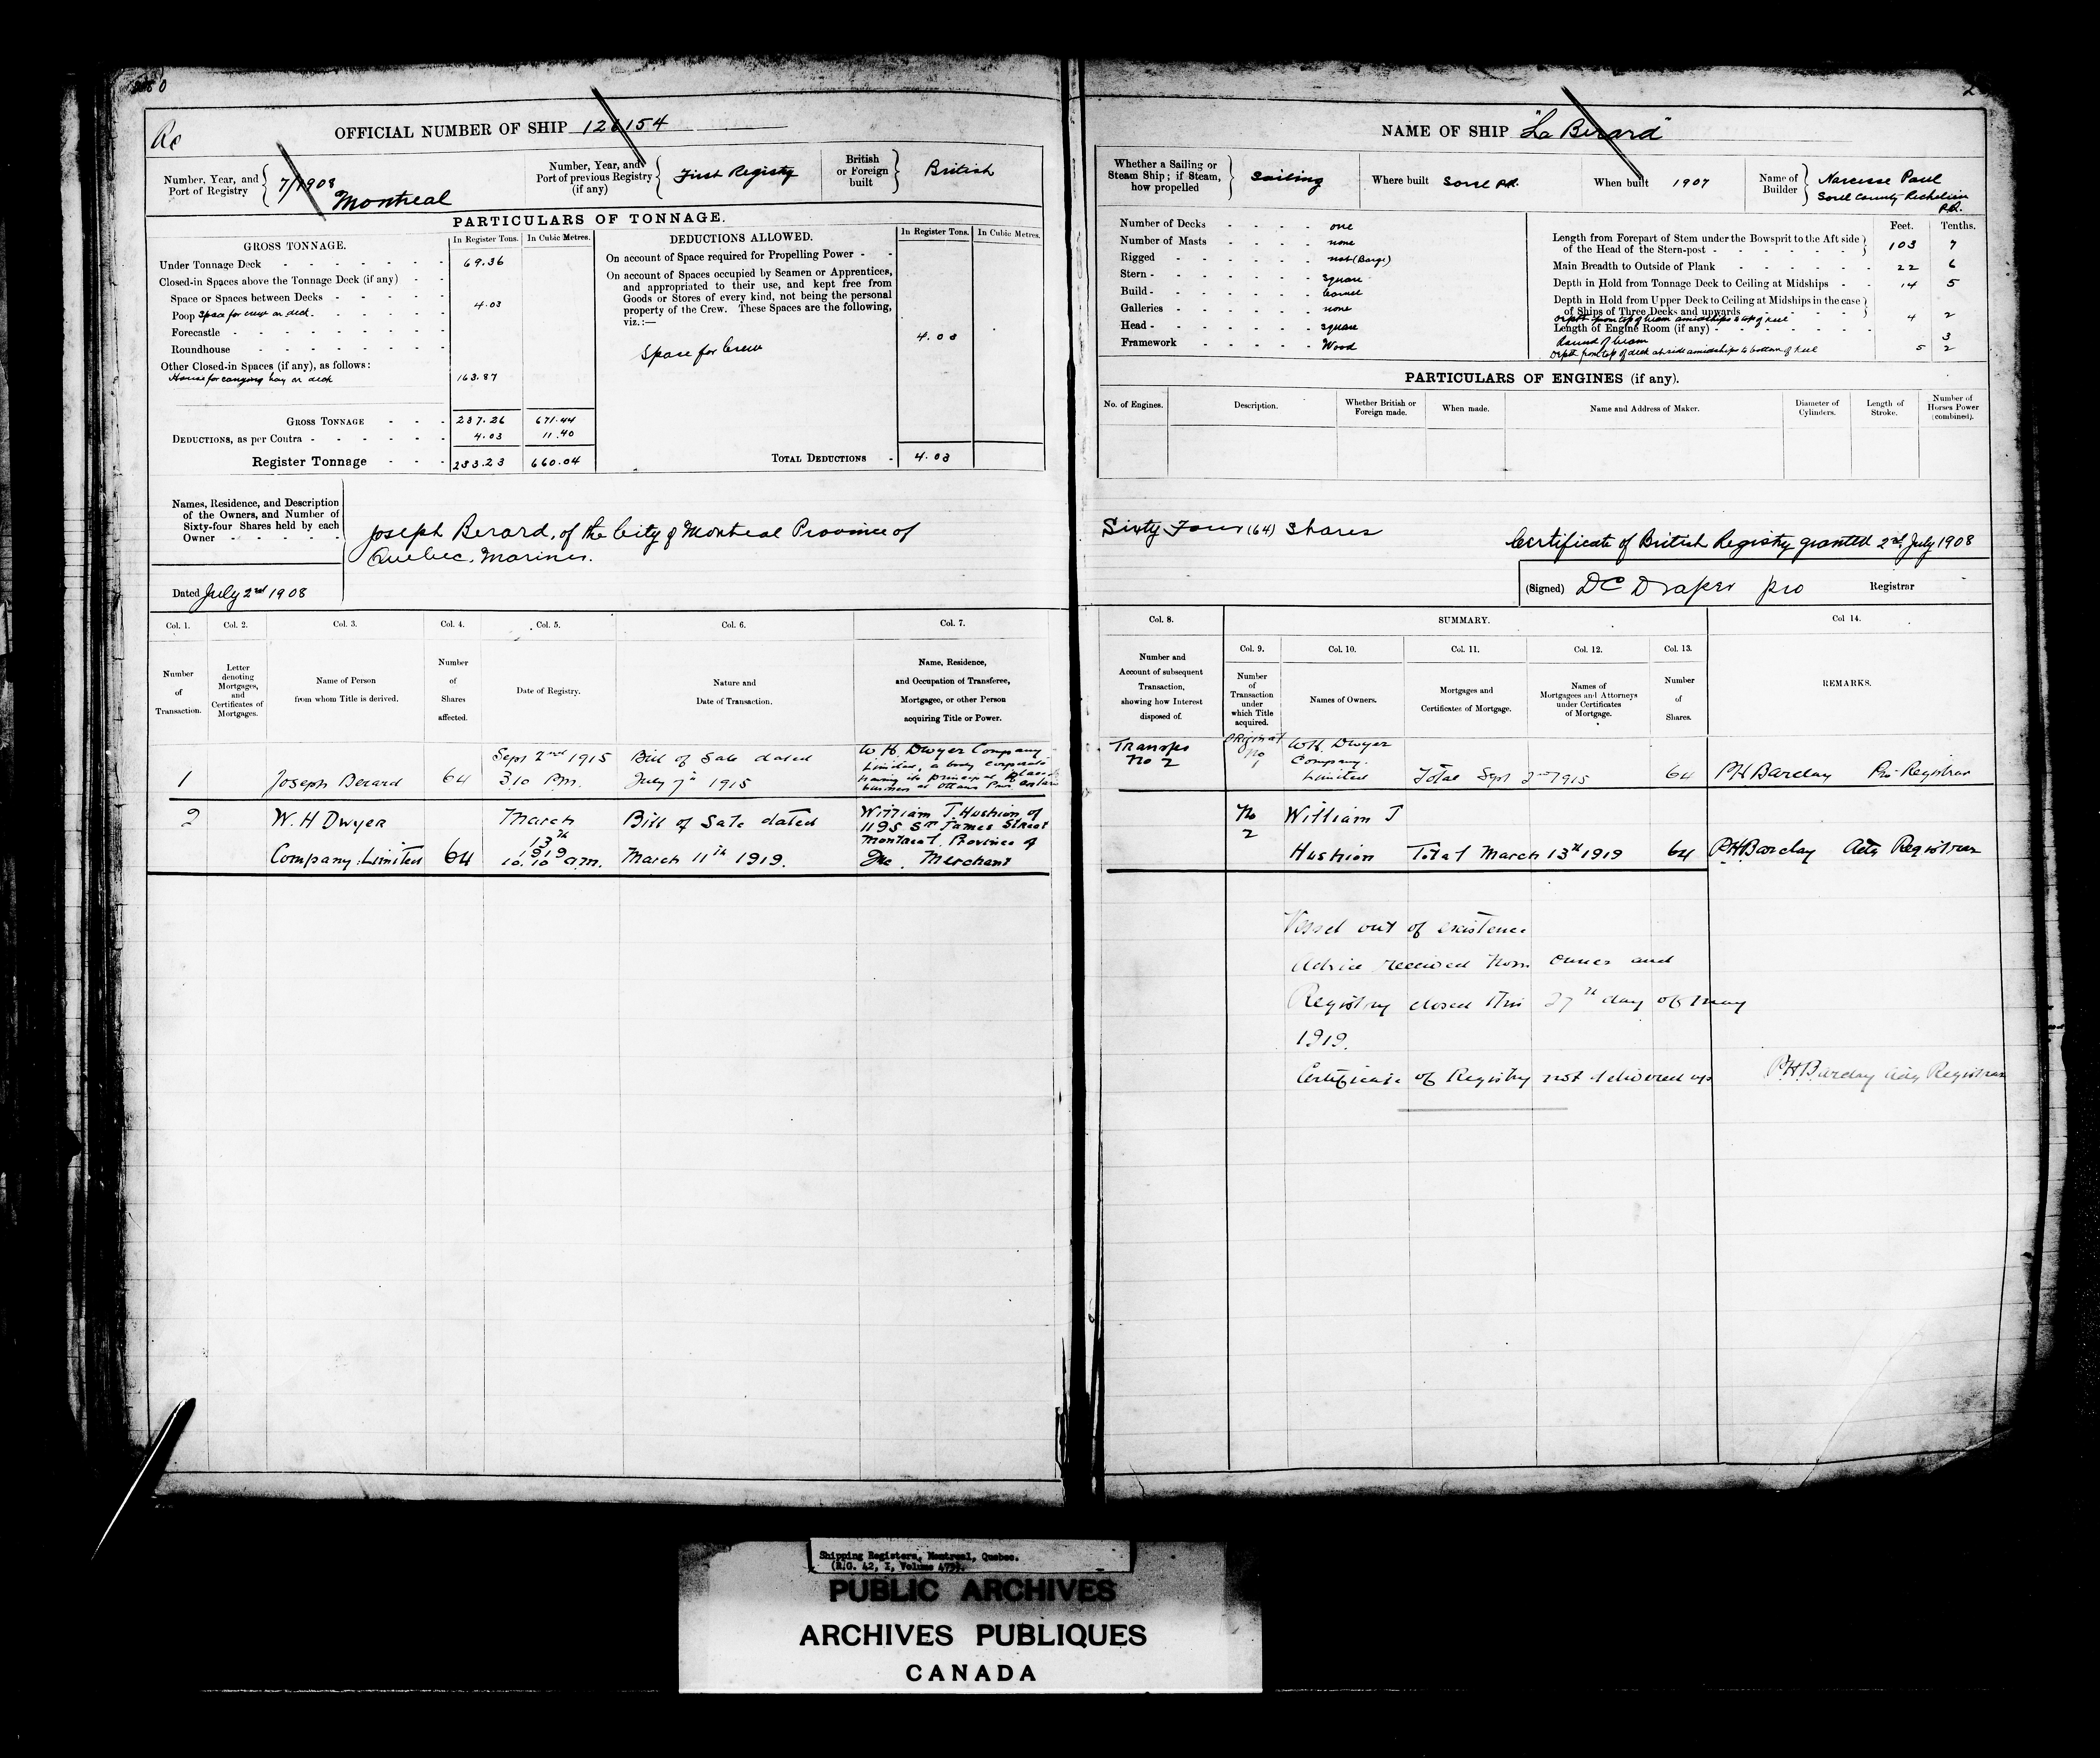 OFFICIAL NUMBER OF SHIP 126154
Number, Year, and Port of Registry 7/1908 Montreal
Number, Year, and Port of previous Registry (if any) First Registry
British or Foreign built British
PARTICULARS OF TONNAGE.
GROSS TONNAGE. In Register Tons. In Cubic Metres.
Under Tonnage Deck 69.36
Closed-in Spaces above the Tonnage Deck (if any)
Space or Spaces between Decks
Poop Space for crew on deck 4.03
Forecastle
Roundhouse
Other Closed-in Spaces (if any), as follows:
House for carrying hay on deck 163.87
GROSS TONNAGE 237.26 671.44
DEDUCTIONS, as per Contra 4.03 11.40
Register Tonnage 233.23 660.04
DEDUCTIONS ALLOWED. In Register Tons. In Cubic Metres.
On account of Space required for Propelling Power
On account of Spaces occupied by Seamen or Apprentices,
and appropriated to their use, and kept free from
Goods or Stores of every kind, not being the personal
property of the Crew. These Spaces are the following,
viz.:—
Space for Crew 4.03
TOTAL DEDUCTIONS 4.03
Names, Residence, and Description
of the Owners, and Number of
Sixty-four Shares held by each
Owner
Joseph Berard, of the City of Montreal Province of
Quebec. Mariner.
Dated July 2nd 1908
Col. 1. Col. 2. Col. 3. Col. 4. Col. 5. Col. 6. Col. 7.
Number of Transaction.
Letter denoting Mortgages, and Certificates of Mortgages.
Name of Person from whom Title is derived.
Number of Shares affected.
Date of Registry.
Nature and Date of Transaction.
Name, Residence, and Occupation of Transferee, Mortgagee, or other Person acquiring Title or Power.
1 Joseph Berard 64
Sept 2nd 1915
3.10 P.m.
Bill of Sale dated
July 7th 1915
W H Dwyer Company
Limited, a body corporate
having its principal place of
business at Ottawa Prov. Ontario
2 W. H Dwyer
Company Limited 64
March
13th
1919
10.10 am.
Bill of Sale dated
March 11th 1919.
William T. Hushion of
1195 St James Street
Montreal, Province of
Que. Merchant
NAME OF SHIP "La Berard"
Whether a Sailing or Steam Ship; if Steam, how propelled Sailing
Where built Sorel P.Q.
When built 1907
Name of Builder Narcisse Paul
Sorel County Richelieu
P.Q.
Number of Decks one
Number of Masts none
Rigged not (Barge)
Stern square
Build Carvel
Galleries none
Head square
Framework Wood
Feet. Tenths.
Length from Forepart of Stem under the Bowsprit to the Aft side of the Head of the Stern-post 103 7
Main Breadth to Outside of Plank 22 6
Depth in Hold from Tonnage Deck to Ceiling at Midships 14 5
Depth in Hold from Upper Deck to Ceiling at Midships in the case of Ships of Three Decks and upwards
Depth from top of beam amidships to top of keel 4 2
Length of Engine Room (if any)
Round of beam 3
Depth from top of deck at side amidships to bottom of keel 5 2
PARTICULARS OF ENGINES (if any).
No. of Engines. Description. Whether British or Foreign made. When made. Name and Address of Maker. Diameter of Cylinders. Length of Stroke. Number of Horses Power (combined).
Sixty Four (64) Shares
Certificate of British Registry granted 2nd July 1908
(Signed) D C Draper pro Registrar
Col. 8. SUMMARY. Col 14.
Col. 9. Col. 10. Col. 11. Col. 12. Col. 13.
Number and Account of subsequent Transaction, showing how Interest disposed of.
Number of Transaction under which Title acquired.
Names of Owners.
Mortgages and Certificates of Mortgage.
Names of Mortgagees and Attorneys under Certificates of Mortgage.
Number of Shares.
REMARKS.
Transfer
No 2
Original
No
1
W H. Dwyer
Company.
Limited
Total Sept 2nd 1915 64 P H Barclay Pro Registrar
No
2
William T
Hushion Total March 13th 1919 64 P H Barclay Actg Registrar
Vessel out of existence
Advice received from owner and
Registry closed this 27th day of May
1919.
Certificate of Registry not delivered up P H Barclay Actg Registrar
Shipping Registers, Montreal, Quebec.
PUBLIC ARCHIVES
ARCHIVES PUBLIQUES
CANADA